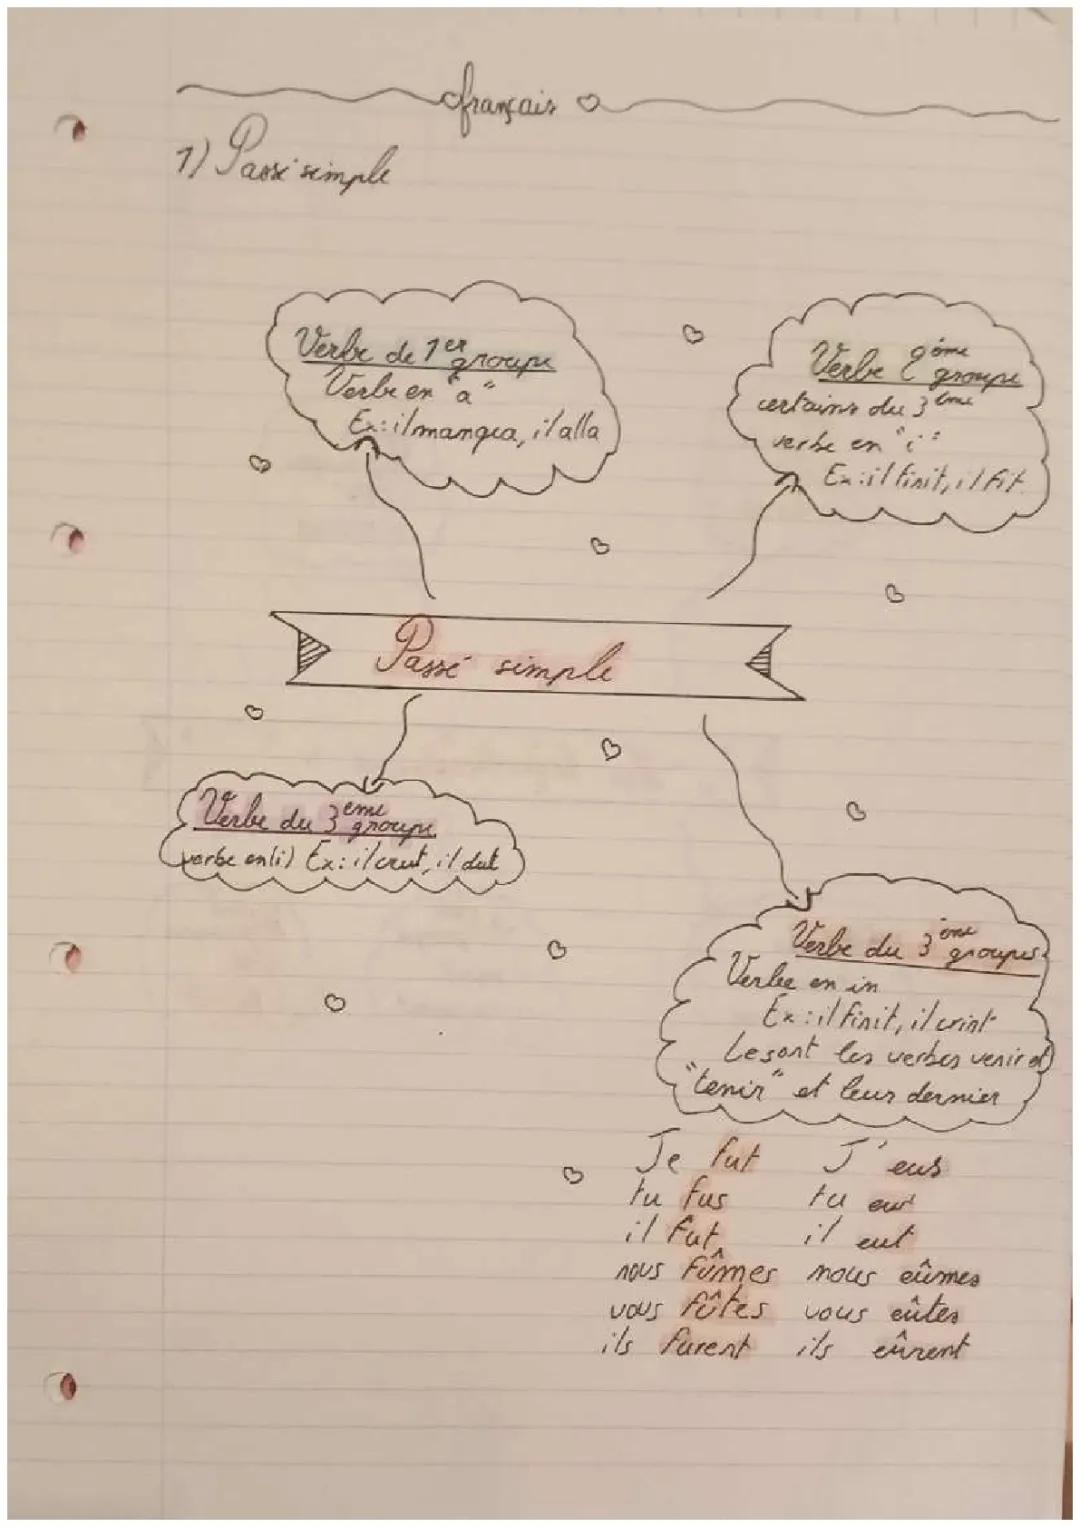 français
1) Passé simple
Verbe de 1er groupe
Verbe en "a"
Ex: il mangea, il alla
Verbe 2ème groupe
certains du 3ème
verbe en "i"
Ex: il finit, il fit.
Passé simple
Verbe du 3eme groupe
verbe en (i) Ex: il crut, il dut
Verbe du 3ème groupes
Verbe en in
Ex: il finit, il crint
Le sont les verbes venir et
"tenir" et leur dernier
Je fut J'eus
tu fus tu
il fut il eut
nous fûmes nous eûmes
vous fûtes vous eûtes
ils furent ils eûrent